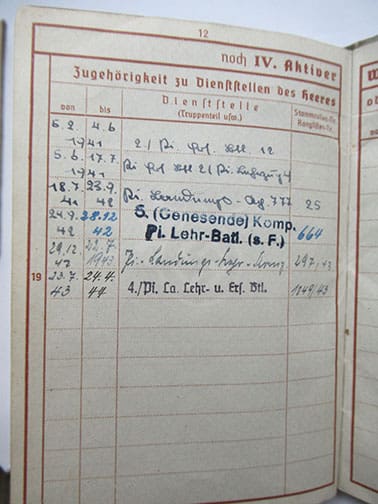 12
noch IV. Aktiver
Zugehörigkeit zu Dienststellen des Heeres
von bis Dienststelle (Truppenteil usw.) Stammrollen-Nr. Ranglisten-Nr.
5.2. 4.6
1941 2/Pi. 12
5.6. 17.7.
1941 Pi 2/Pi.
18.7. 23.9. Pi. Landungs- 777 25
41 42
24.9. 28.12 5. (Genesende) Komp.
42 42 Pi. Lehr-Batl. (s. F.) 664
29.12. 22.7. Pi.-Landungs-Lehr- 297/43
42 1943
19 23.7. 24.4. 4./Pi. La. Lehr- u. Ers. Btl. 1149/43
43 44
W